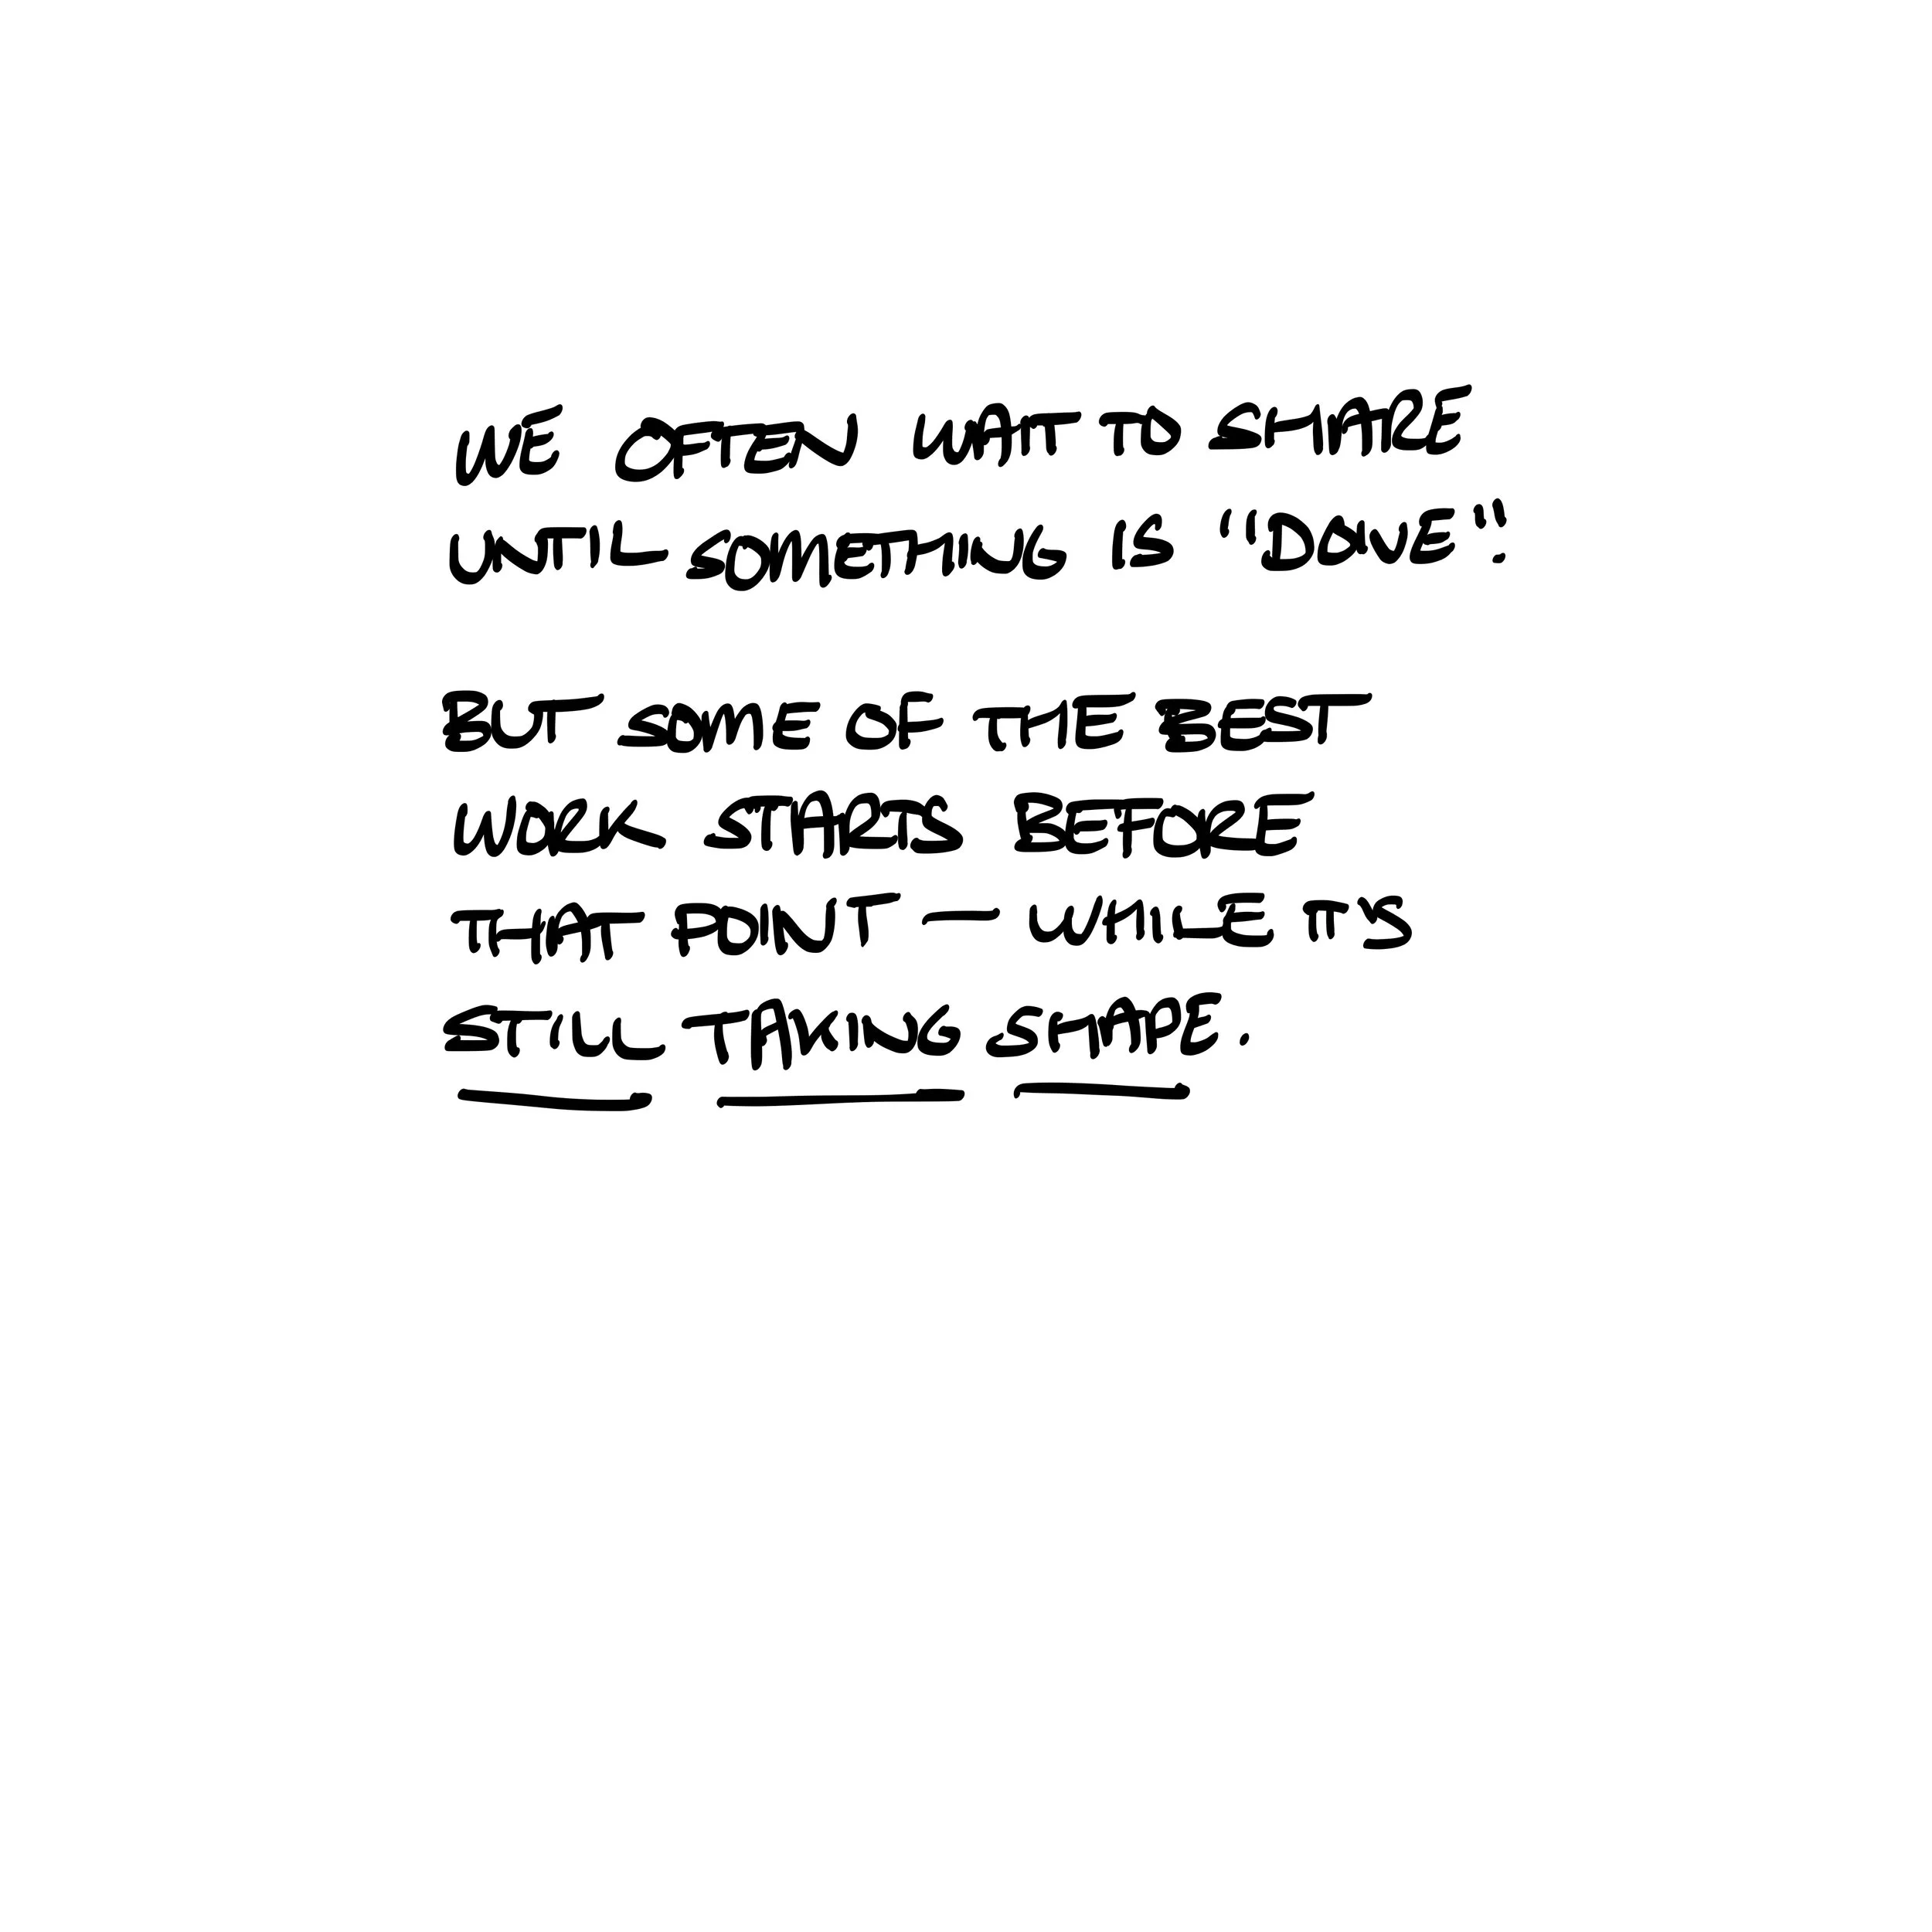 WE OFTEN WAIT TO SHARE
UNTIL SOMETHING IS "DONE".
BUT SOME OF THE BEST
WORK STARTS BEFORE
THAT POINT — WHILE IT'S
STILL TAKING SHAPE.